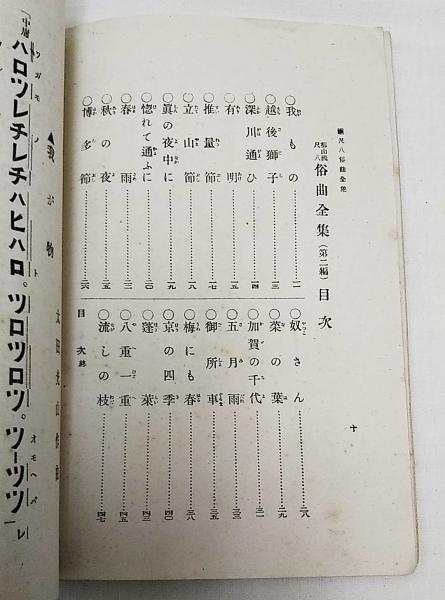 尺八俗曲全集
都山流
尺八
俗曲全集(第二編) 目次
○我もの……一一
○越後獅子……一三
○深川通ひ……一四
○有明……一五
○推量節……一七
○立山節……一八
○眞の夜中に……一九
○惚れて通ふに……二〇
○春雨……二三
○秋の夜……二四
○博多節……二六
○奴さん……二八
○菜の葉……二九
○加賀の千代……三一
○五月雨……三三
○御所車……三五
○梅にも春……三八
○京の四季……四〇
○蓬萊……四三
○八重一重……四五
○流しの枝……四七
目次終
十
▲我が物
ワガモノ ト オモヘバ
ハロツレチレチハヒハロ。ツロツロツ。ツーツツレ